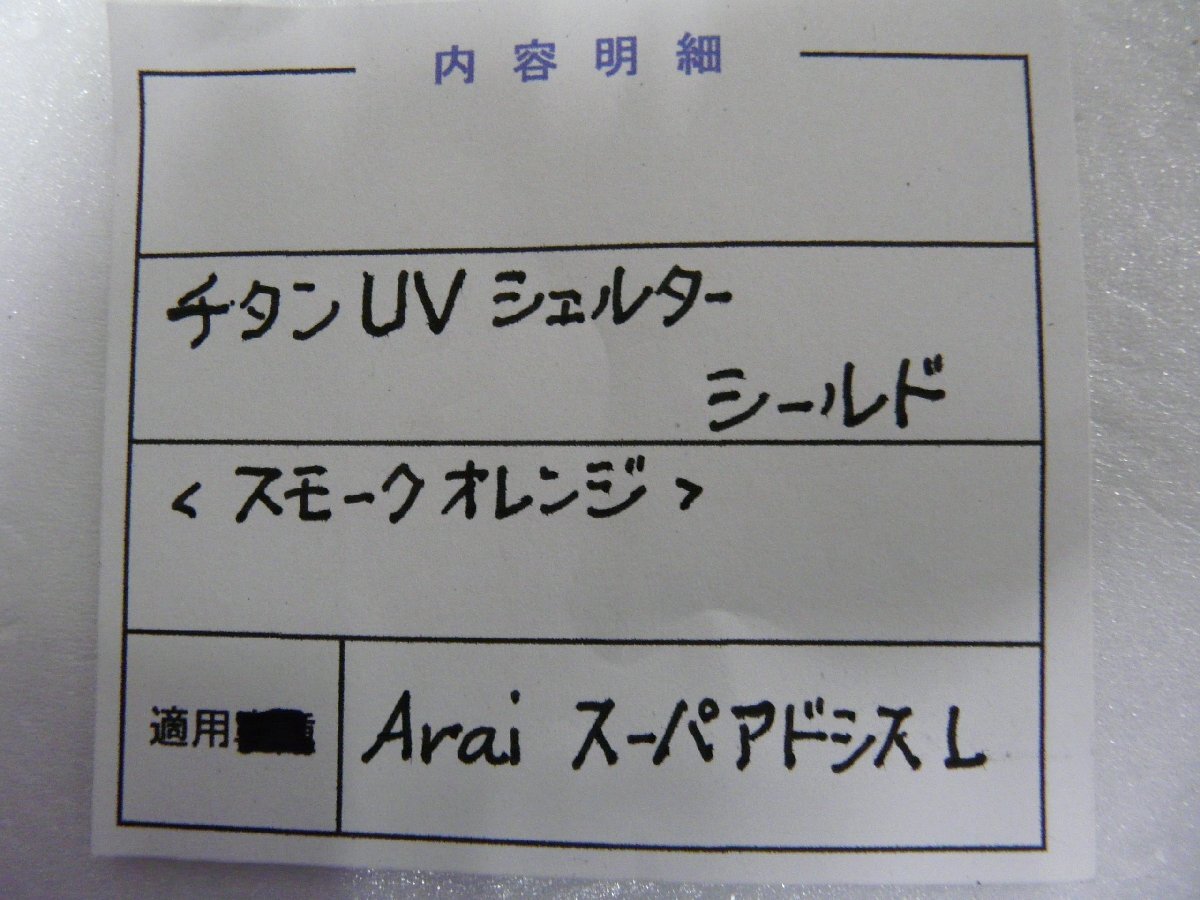 内容明細
チタンUVシェルター
シールド
<スモークオレンジ>
適用
Arai スーパアドシス L